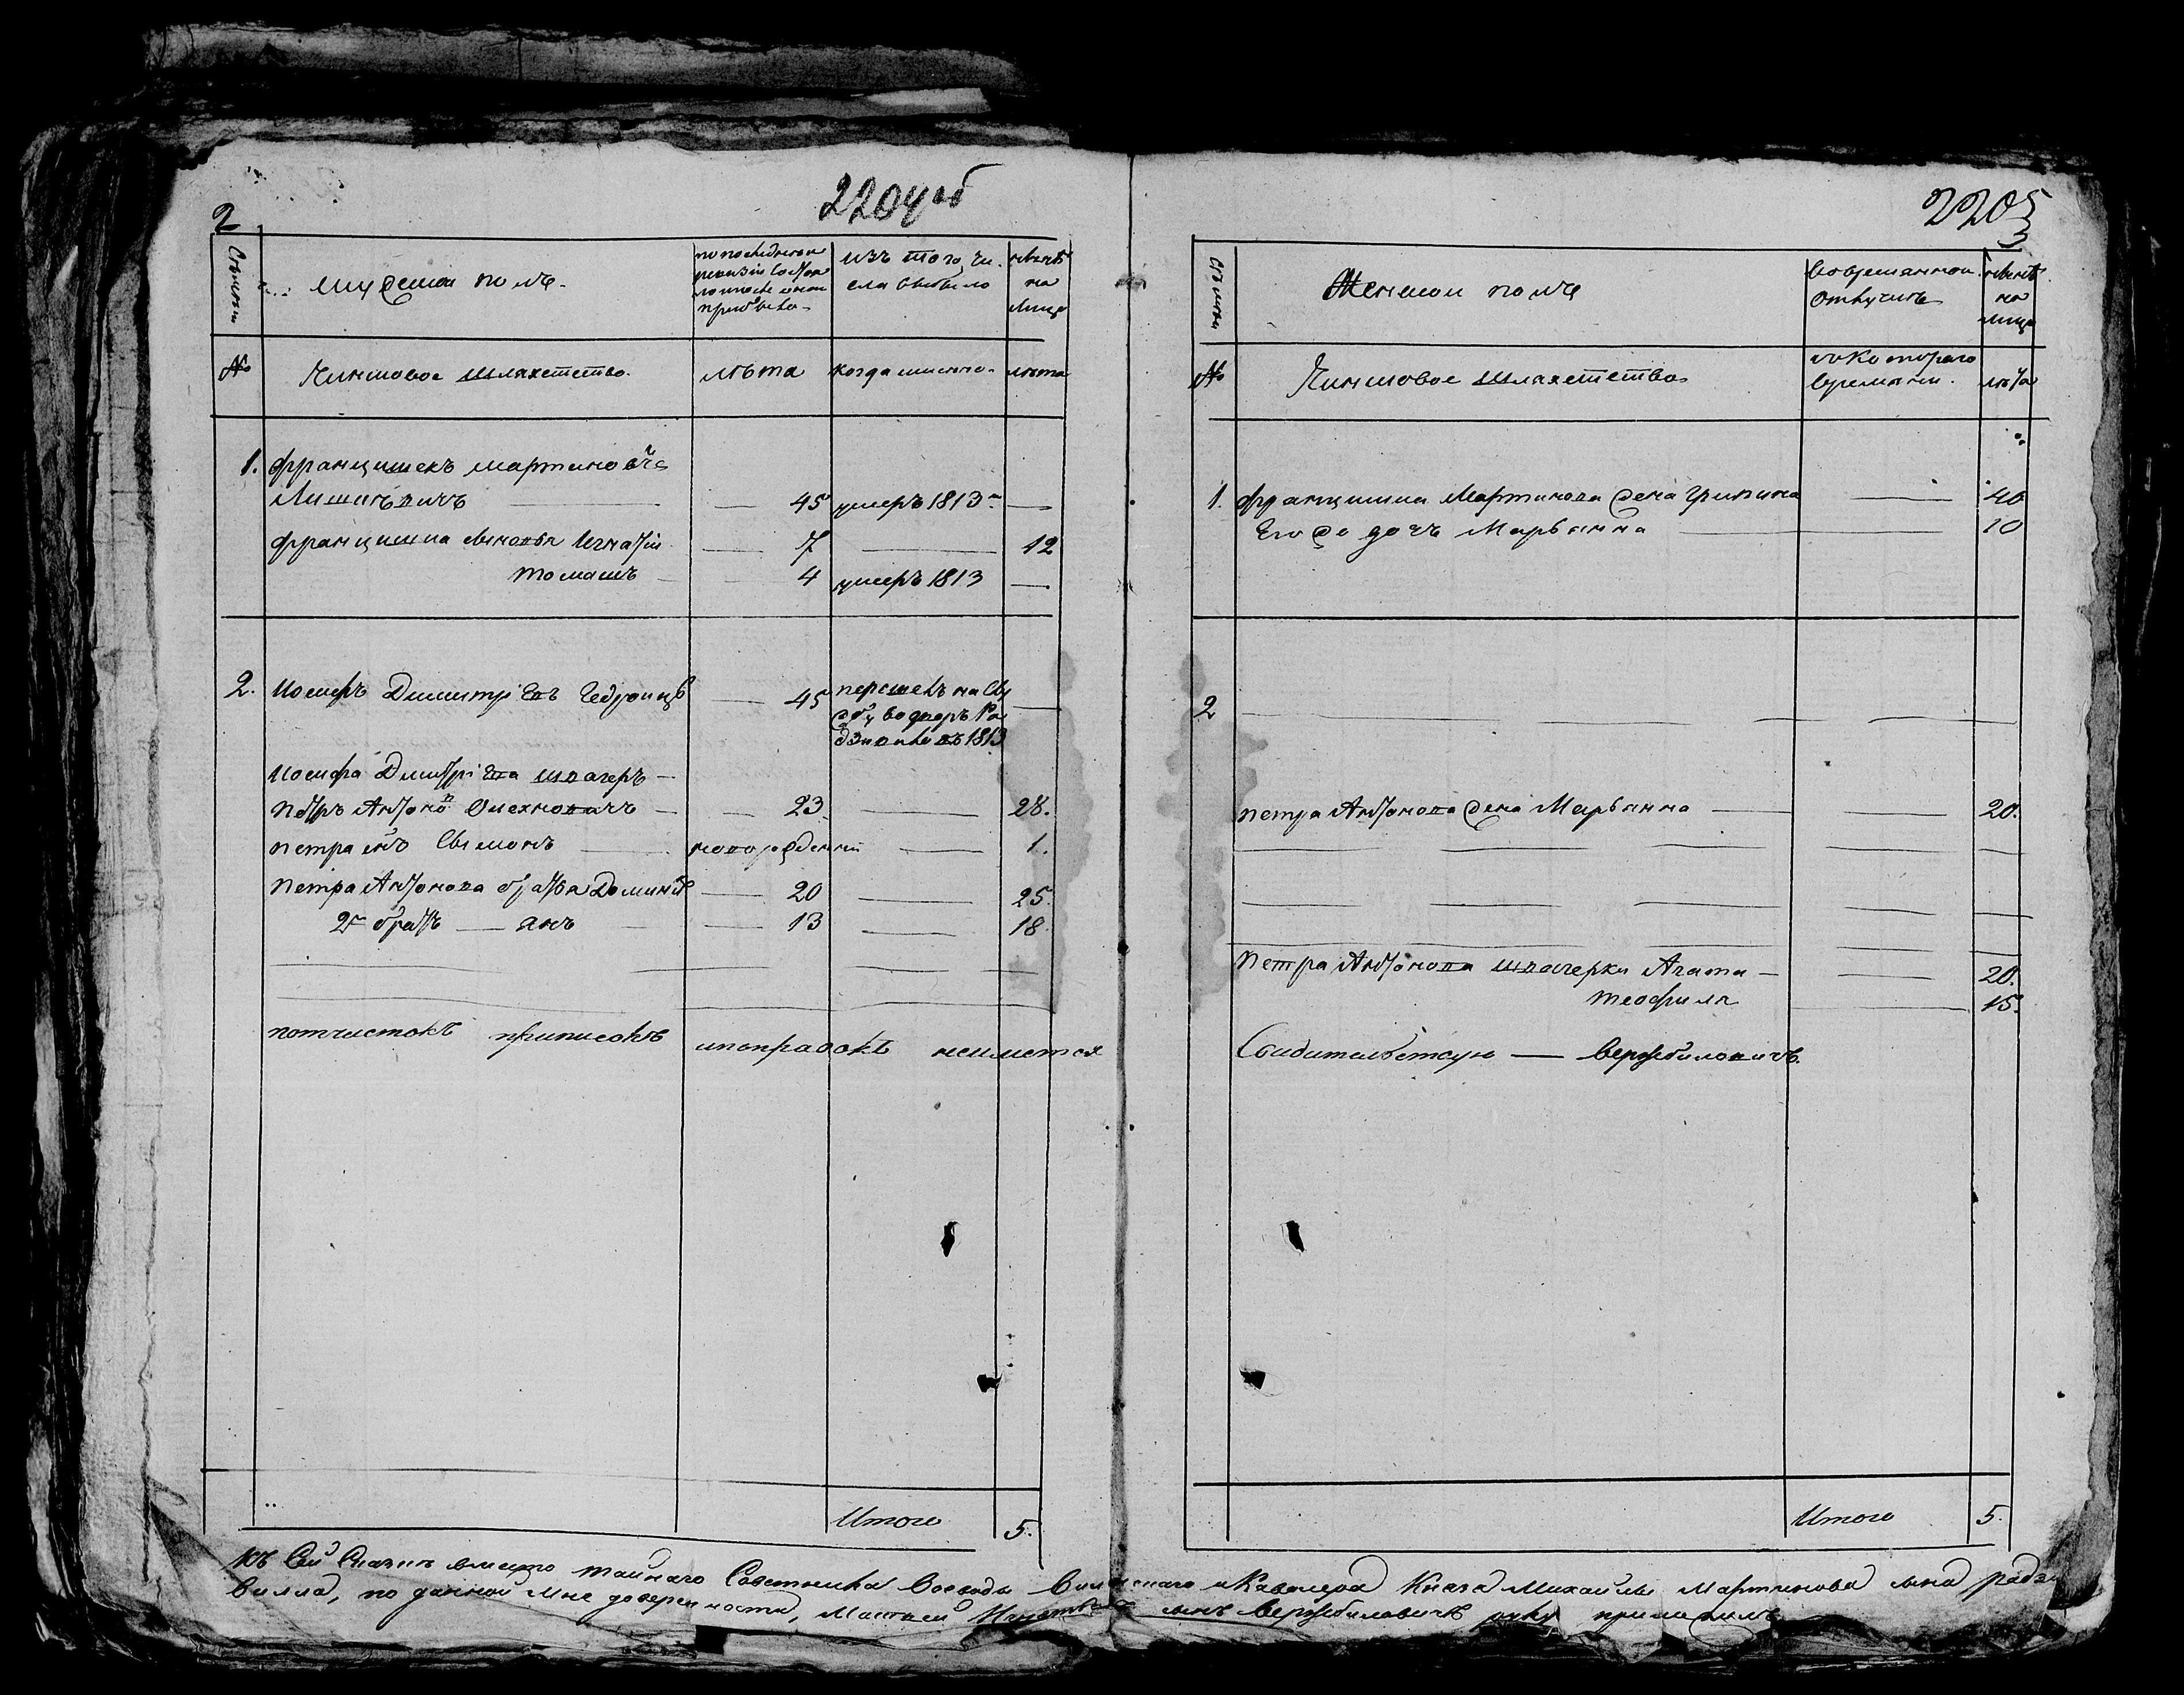 2
2204 об
Семьи
Мужескои полъ.
по последнеи
ревизіи состоя
ло и после онои
прибыло
изъ того чи
сла выбыло
ныне
на
лицо
№
Чиншовое шляхетство.
лѣта
когда имянно
лѣта
1. Францишекъ Мартинов
45 умеръ 1813
Францишка сыновья Игнатій 7 12
Томашъ 4 умеръ 1813
2. Иосифъ Димитріевъ 45 перешелъ на
1813
Иосифа Дмитріева швагеръ
Петръ Антоновъ Олехновичъ 23 28.
Петра сынъ Сымонъ новорожденный 1.
Петра Антонова братья Доминикъ 20 25.
2й братъ Янъ 13 18
потчистокъ приписокъ ипоправокъ неимеется
Итого 5.
2205
3
Семьи
Женскои полъ
Во временнои
отлучкѣ
ныне
на
лицо
№
Чиншовое шляхетство
скотораго
времяни.
лѣта
1. Францишка Мартинова жена 40
Его же дочь Марьянна 10
2
Петра Антонова жена Марьянна 20.
Петра Антонова швагерки Агата 20.
Теофиля 15.
Свидителствую Вержбиловичъ
Итого 5.
Къ сей сказки вместо тайнаго Советника Воеводы Виленскаго и Кавалера Князя Михайлы Мартинова сына Радзи
вилла, по данной мне доверенности, Матвей сынъ Вержбиловичъ руку приложилъ